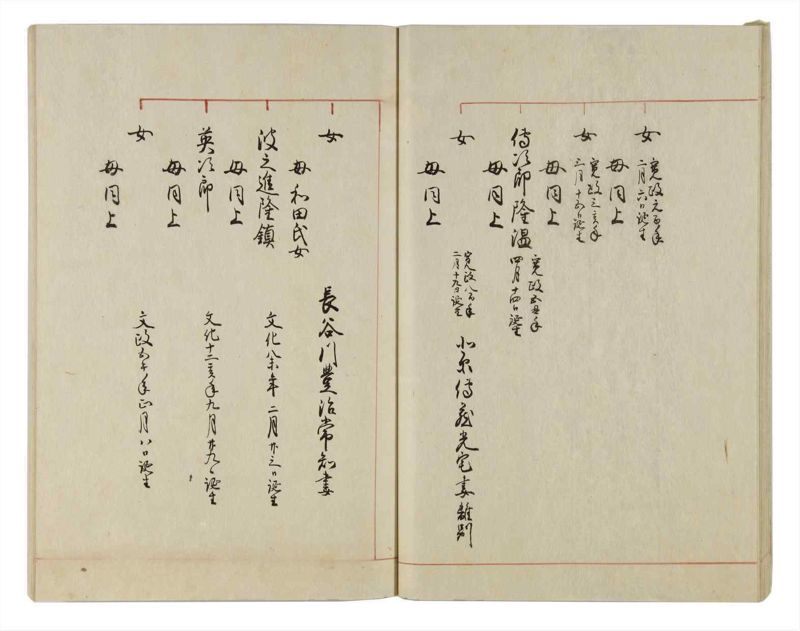 女
寛政元酉年
二月六日誕生
母同上
女
寛政三亥年
三月十五日誕生
母同上
傳次郎隆温
寛政五丑年
四月十四日誕生
母同上
女
寛政八辰年
二月十九日誕生
小泉傳蔵光宅妻離別
母同上
女
長谷川豊治常知妻
母和田氏女
波之進隆鎮
文化八未年二月廿三日誕生
母同上
英次郎
文化十二亥年九月廿九日誕生
母同上
女
文政五午年正月八日誕生
母同上